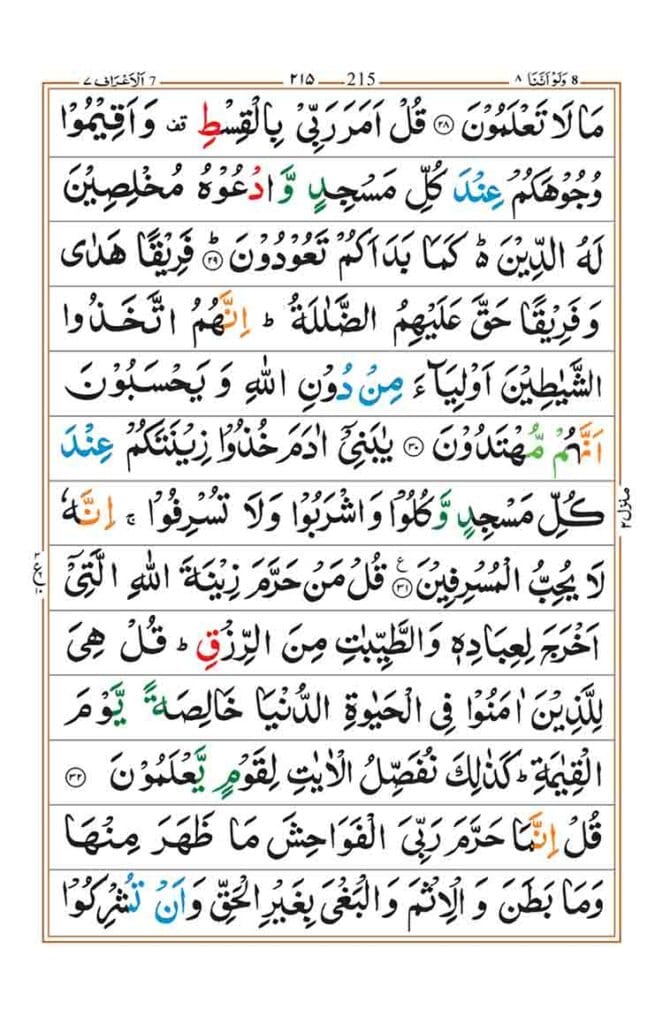 8 وَلَوْ اَنَّنَا ۸ 215 ۲۱۵ 7 اَلْاَعْرَاف ۷
مَا لَا تَعْلَمُوْنَ ﴿۲۸﴾ قُلْ اَمَرَ رَبِّیْ بِالْقِسْطِ قف وَ اَقِیْمُوْا
وُجُوْهَكُمْ عِنْدَ كُلِّ مَسْجِدٍ وَّ ادْعُوْهُ مُخْلِصِیْنَ
لَهُ الدِّیْنَ ؕ۬ كَمَا بَدَاَكُمْ تَعُوْدُوْنَ ﴿ؕ۲۹﴾ فَرِیْقًا هَدٰی
وَ فَرِیْقًا حَقَّ عَلَیْهِمُ الضَّلٰلَةُ ؕ اِنَّهُمُ اتَّخَذُوا
الشَّیٰطِیْنَ اَوْلِیَآءَ مِنْ دُوْنِ اللّٰهِ وَ یَحْسَبُوْنَ
اَنَّهُمْ مُّهْتَدُوْنَ ﴿۳۰﴾ یٰبَنِیْۤ اٰدَمَ خُذُوْا زِیْنَتَكُمْ عِنْدَ
كُلِّ مَسْجِدٍ وَّ كُلُوْا وَ اشْرَبُوْا وَ لَا تُسْرِفُوْا ۚ اِنَّهٗ
لَا یُحِبُّ الْمُسْرِفِیْنَ ﴿۳۱﴾ ع قُلْ مَنْ حَرَّمَ زِیْنَةَ اللّٰهِ الَّتِیْۤ
اَخْرَجَ لِعِبَادِهٖ وَ الطَّیِّبٰتِ مِنَ الرِّزْقِ ؕ قُلْ هِیَ
لِلَّذِیْنَ اٰمَنُوْا فِی الْحَیٰوةِ الدُّنْیَا خَالِصَةً یَّوْمَ
الْقِیٰمَةِ ؕ كَذٰلِكَ نُفَصِّلُ الْاٰیٰتِ لِقَوْمٍ یَّعْلَمُوْنَ ﴿۳۲﴾
قُلْ اِنَّمَا حَرَّمَ رَبِّیَ الْفَوَاحِشَ مَا ظَهَرَ مِنْهَا
وَ مَا بَطَنَ وَ الْاِثْمَ وَ الْبَغْیَ بِغَیْرِ الْحَقِّ وَ اَنْ تُشْرِكُوْا
منزل ۲